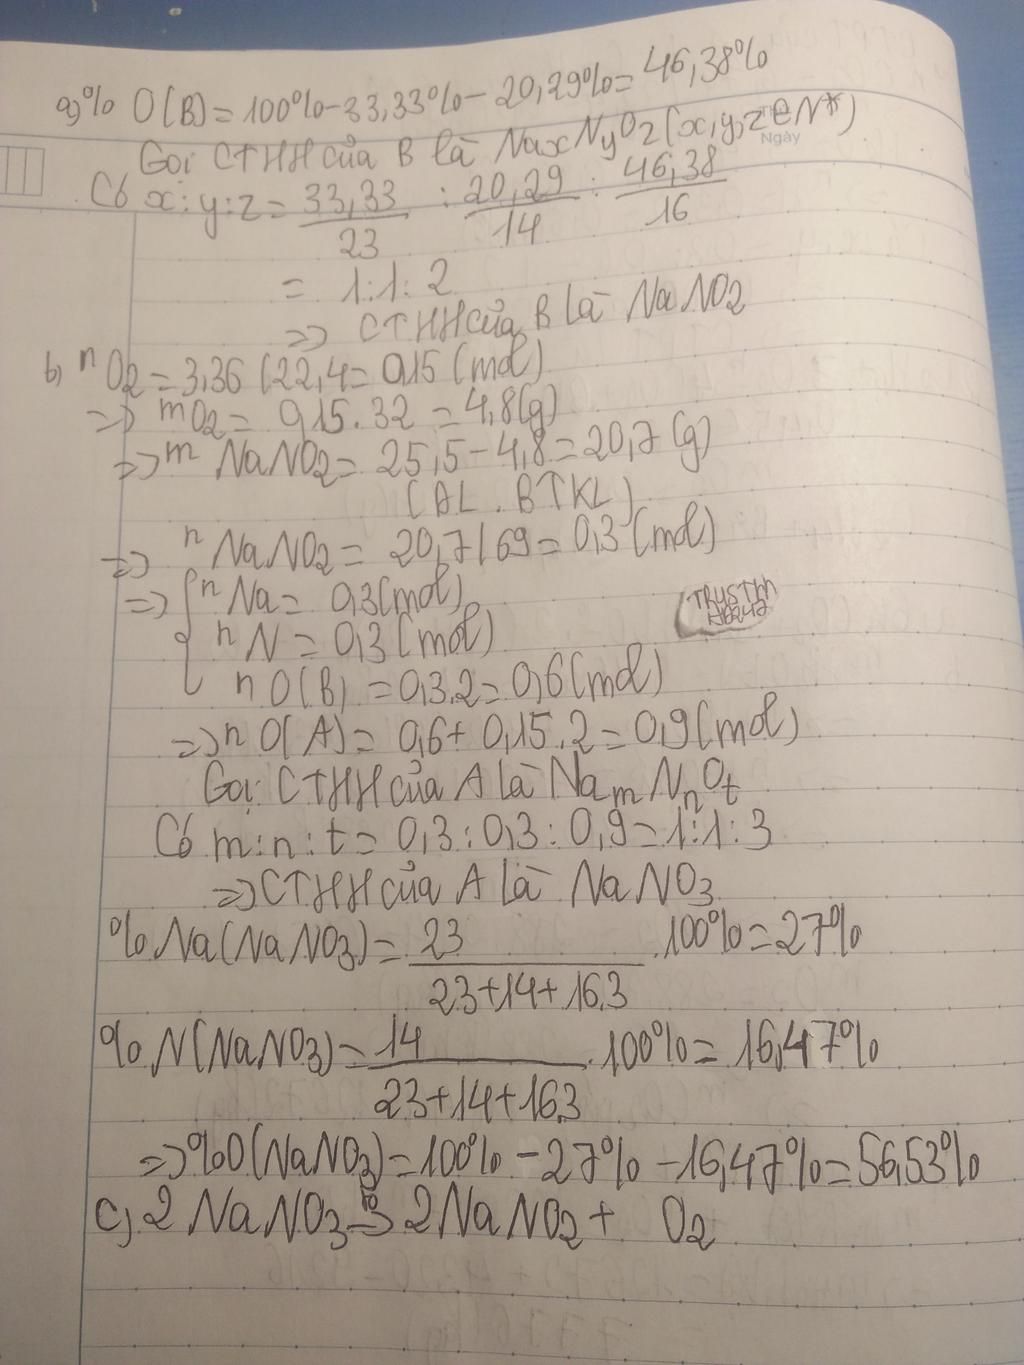 a) % O(B) = 100% - 33,33% - 20,29% = 46,38%
Ngày
Gọi CTHH của B là NaxNyOz (x,y,z ∈ N*)
Có x:y:z = 33,33/23 : 20,29/14 : 46,38/16
= 1:1:2
=> CTHH của B là NaNO2
b) nO2 = 3,36/22,4 = 0,15 (mol)
=> mO2 = 0,15.32 = 4,8(g)
=> m NaNO2 = 25,5 - 4,8 = 20,7 (g)
(ĐL.BTKL)
=> n NaNO2 = 20,7/69 = 0,3 (mol)
=> { n Na = 0,3(mol)
n N = 0,3 (mol)
n O(B) = 0,3.2 = 0,6 (mol)
=> n O(A) = 0,6 + 0,15.2 = 0,9 (mol)
Gọi CTHH của A là NamNnOt
Có m:n:t = 0,3:0,3:0,9 = 1:1:3
=> CTHH của A là NaNO3
% Na(NaNO3) = 23/(23+14+16.3) .100% = 27%
% N(NaNO3) = 14/(23+14+16.3) .100% = 16,47%
=> %O(NaNO3) = 100% - 27% - 16,47% = 56,53%
c) 2NaNO3 -to-> 2NaNO2 + O2